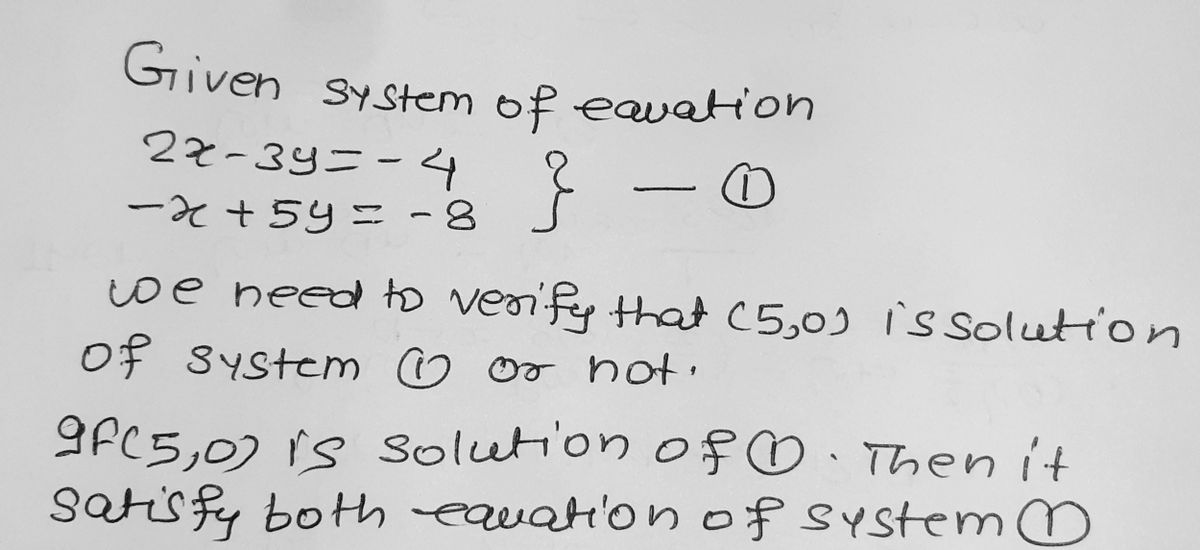 Given system of equation
2x-3y=-4
-x+5y=-8 } — ①
we need to verify that (5,0) is solution
of system ① or not.
If (5,0) is solution of ①. Then it
satisfy both equation of system ①